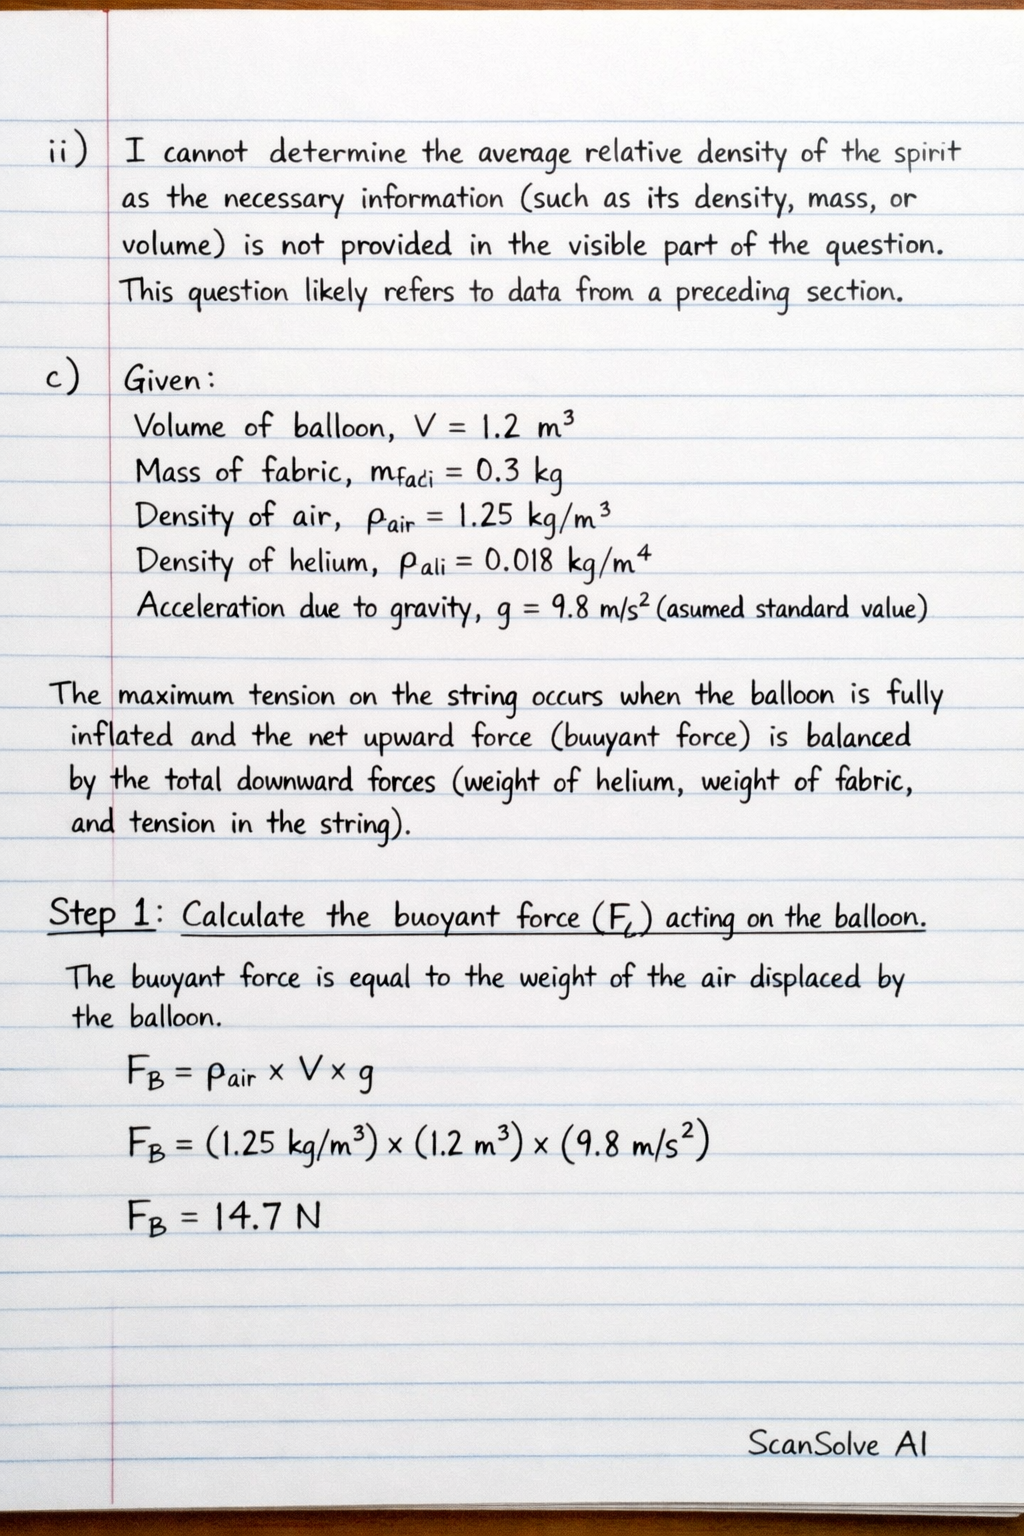 ii) I cannot determine the average relative density of the spirit
as the necessary information (such as its density, mass, or
volume) is not provided in the visible part of the question.
This question likely refers to data from a preceding section.
c) Given:
Volume of balloon, V = 1.2 m³
Mass of fabric, m_faci = 0.3 kg
Density of air, ρ_air = 1.25 kg/m³
Density of helium, ρ_ali = 0.018 kg/m⁴
Acceleration due to gravity, g = 9.8 m/s² (asumed standard value)
The maximum tension on the string occurs when the balloon is fully
inflated and the net upward force (buuyant force) is balanced
by the total downward forces (weight of helium, weight of fabric,
and tension in the string).
Step 1: Calculate the buoyant force (F_L) acting on the balloon.
The buuyant force is equal to the weight of the air displaced by
the balloon.
F_B = ρ_air × V × g
F_B = (1.25 kg/m³) × (1.2 m³) × (9.8 m/s²)
F_B = 14.7 N
ScanSolve AI